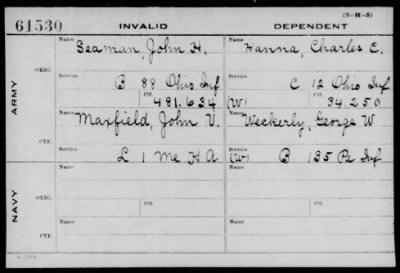 (3-H-3)
61530 INVALID DEPENDENT
Name Name
Seaman, John H. Hanna, Charles C.
ORIG.
Service Service
B 88 Ohio Inf C 12 Ohio Inf
Ctf. Ctf.
481,634 (W) 34,250
ARMY
Name Name
Maxfield, John V. Weckerly, George W
CTF.
Service Service
L 1 Me H A (W) B 135 Pa Inf
Name Name
ORIG.
Service Service
Ctf. Ctf.
NAVY
Name Name
CTF.
Service Service